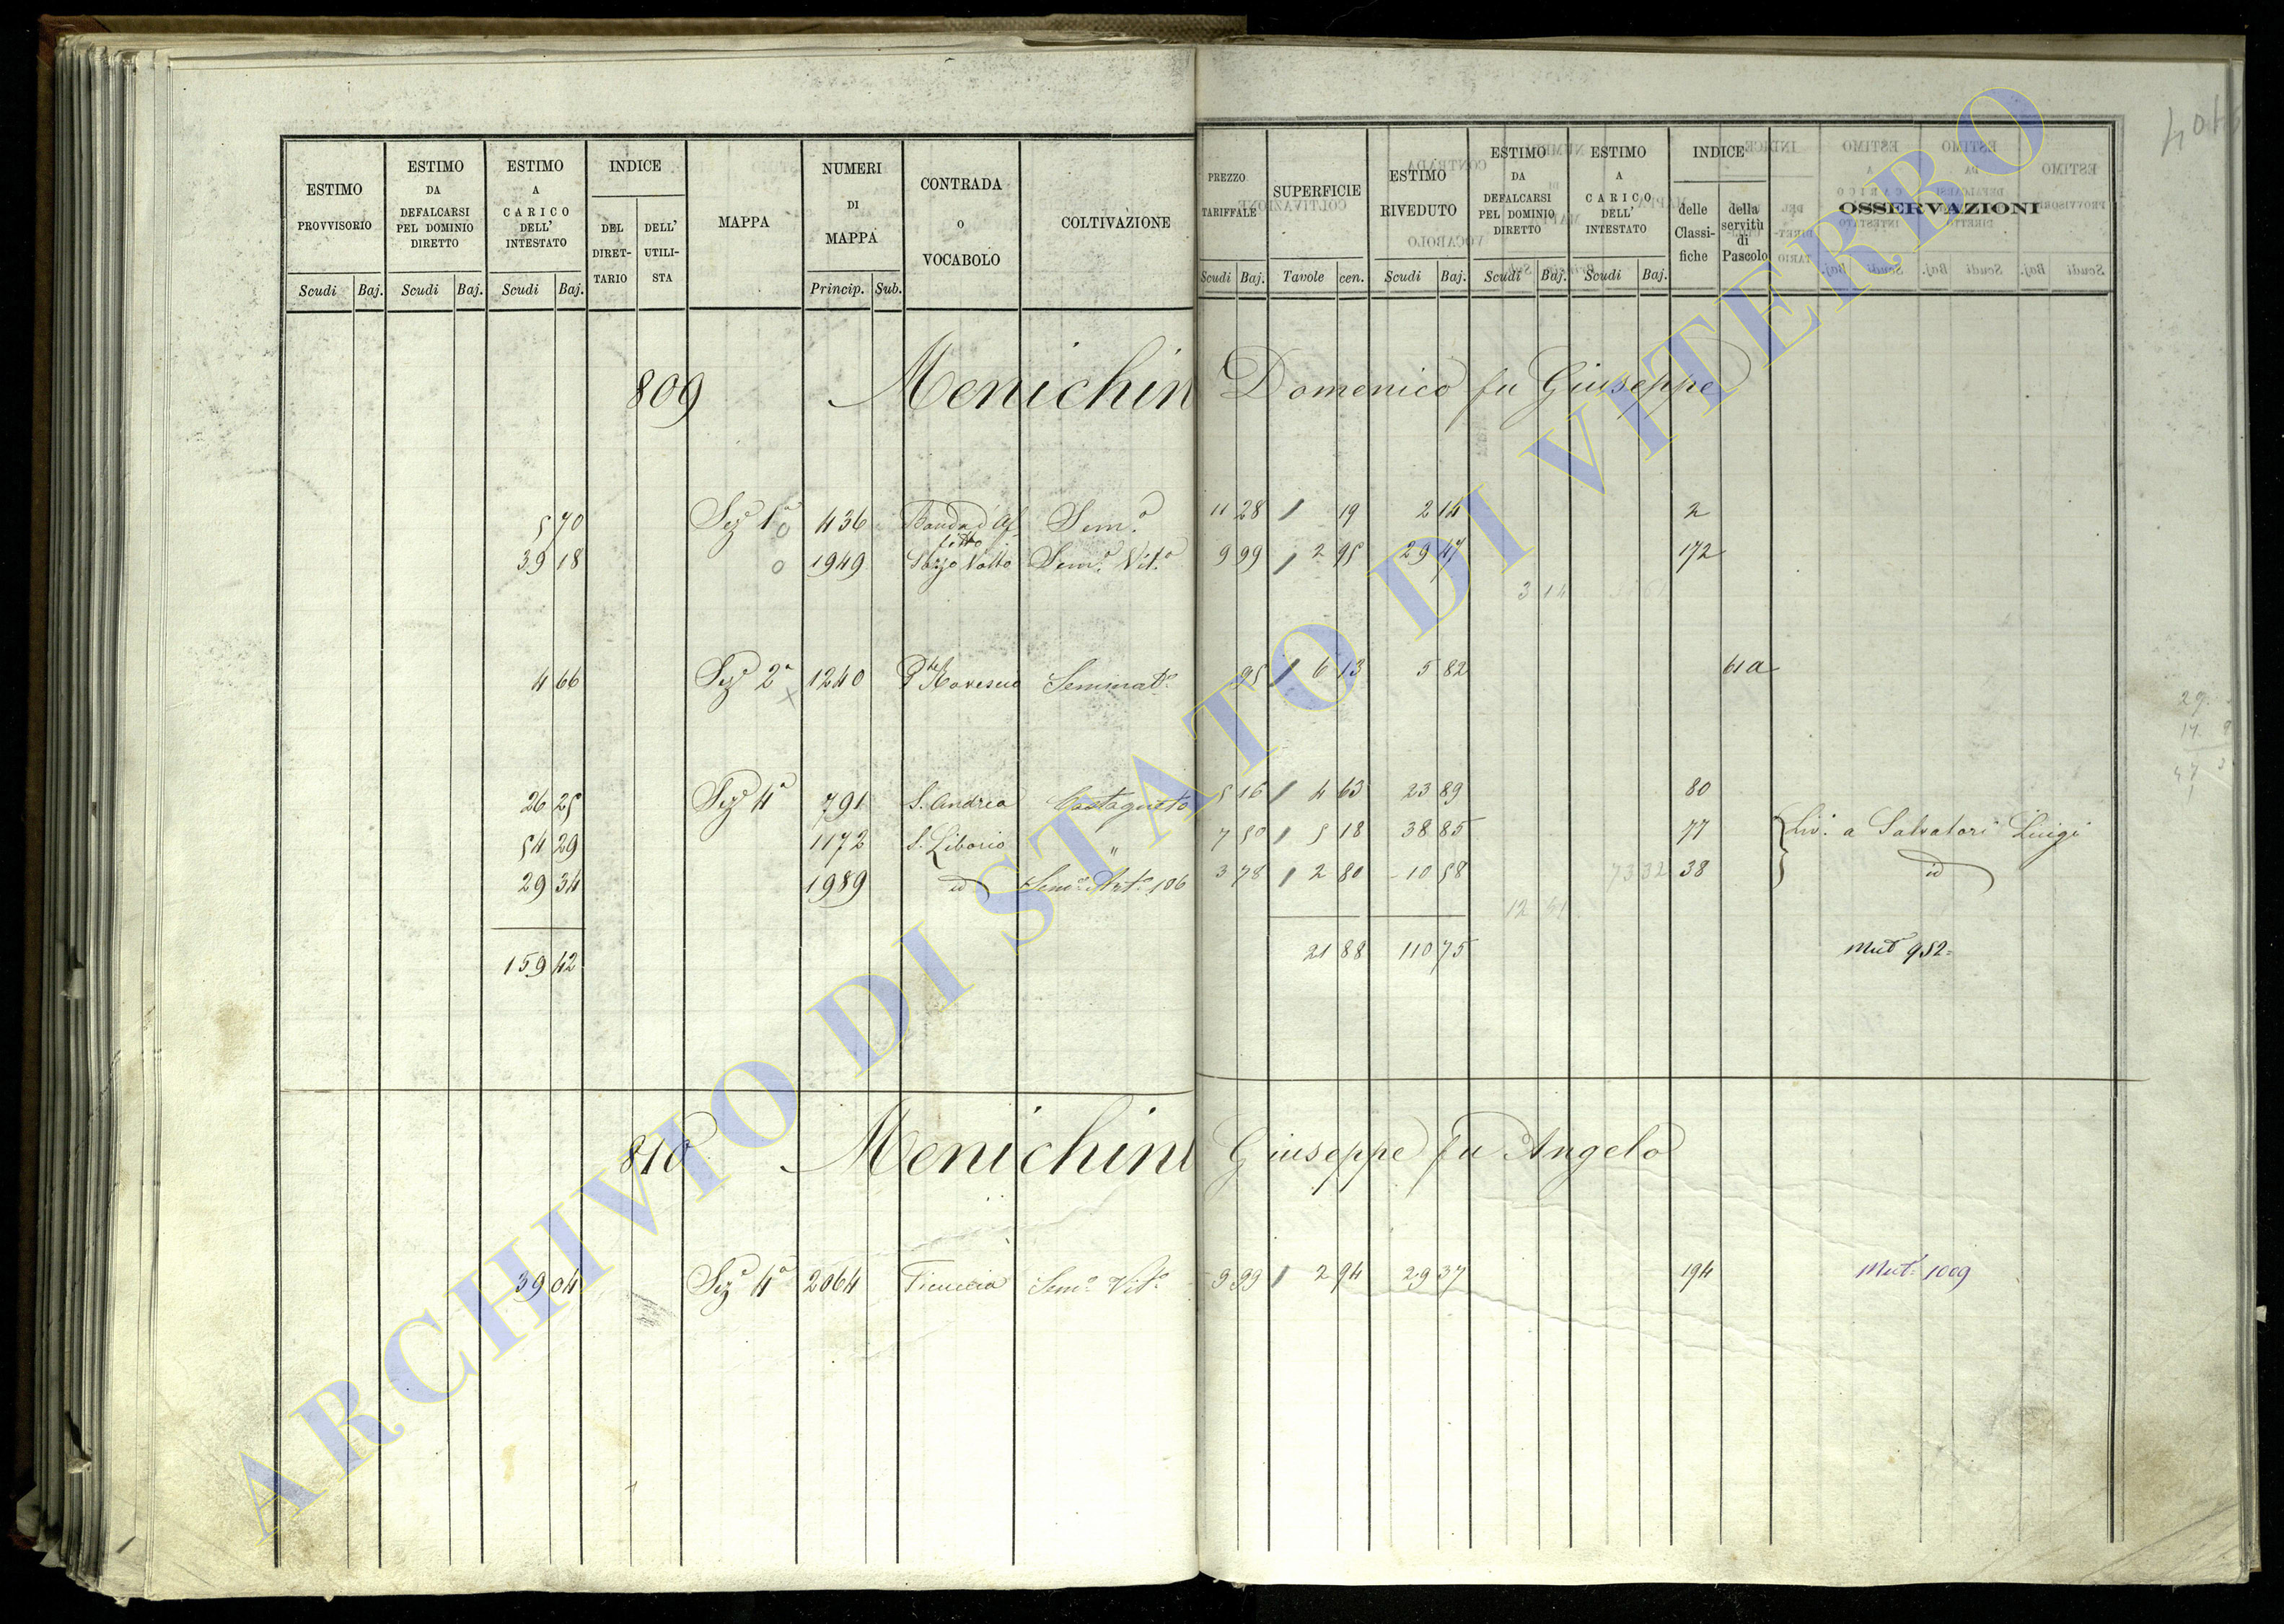 ESTIMO PROVVISORIO Scudi Baj.
ESTIMO DA DEFALCARSI PEL DOMINIO DIRETTO Scudi Baj.
ESTIMO A CARICO DELL' INTESTATO Scudi Baj.
INDICE DEL DIRET-TARIO DELL' UTILI-STA
MAPPA
NUMERI DI MAPPA Princip. Sub.
CONTRADA o VOCABOLO
COLTIVAZIONE
PREZZO TARIFFALE Scudi Baj.
SUPERFICIE Tavole cen.
ESTIMO RIVEDUTO Scudi Baj.
ESTIMO DA DEFALCARSI PEL DOMINIO DIRETTO Scudi Baj.
ESTIMO A CARICO DELL' INTESTATO Scudi Baj.
INDICE delle Classi-fiche della servitù di Pascolo
OSSERVAZIONI
809 Menichin Domenico fu Giuseppe
5 70 Sez.e 1a 436 Sem.o 11 28 19 2 14 2
39 18 1949 Sem.o Vit.o 9 99 2 95 29 47 172
3 14
4 66 Sez.e 2a 1240 Seminat.o 95 6 13 5 82 61a
26 25 Sez.e 4a 791 S. Andrea Castagneto 5 16 4 63 23 89 80
54 29 1172 S. Liborio " 7 50 5 18 38 85 77 Liv.o a Salvatori Luigi
29 34 1989 id 106 3 78 2 80 10 58 73 32 38 id
12 51
159 42 21 88 110 75 Mut 952=
810 Menichini Giuseppe fu Angelo
39 04 Sez.e 4a 2064 Ficuccia Sem.o Vit.o 9 99 2 94 29 37 194 Mut. 1009
ARCHIVIO DI STATO DI VITERBO